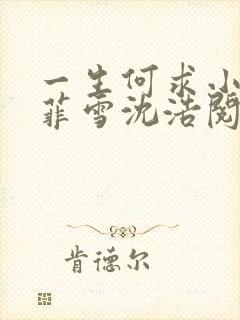 一生何求小
菲雪沈浩阅
肯德尔